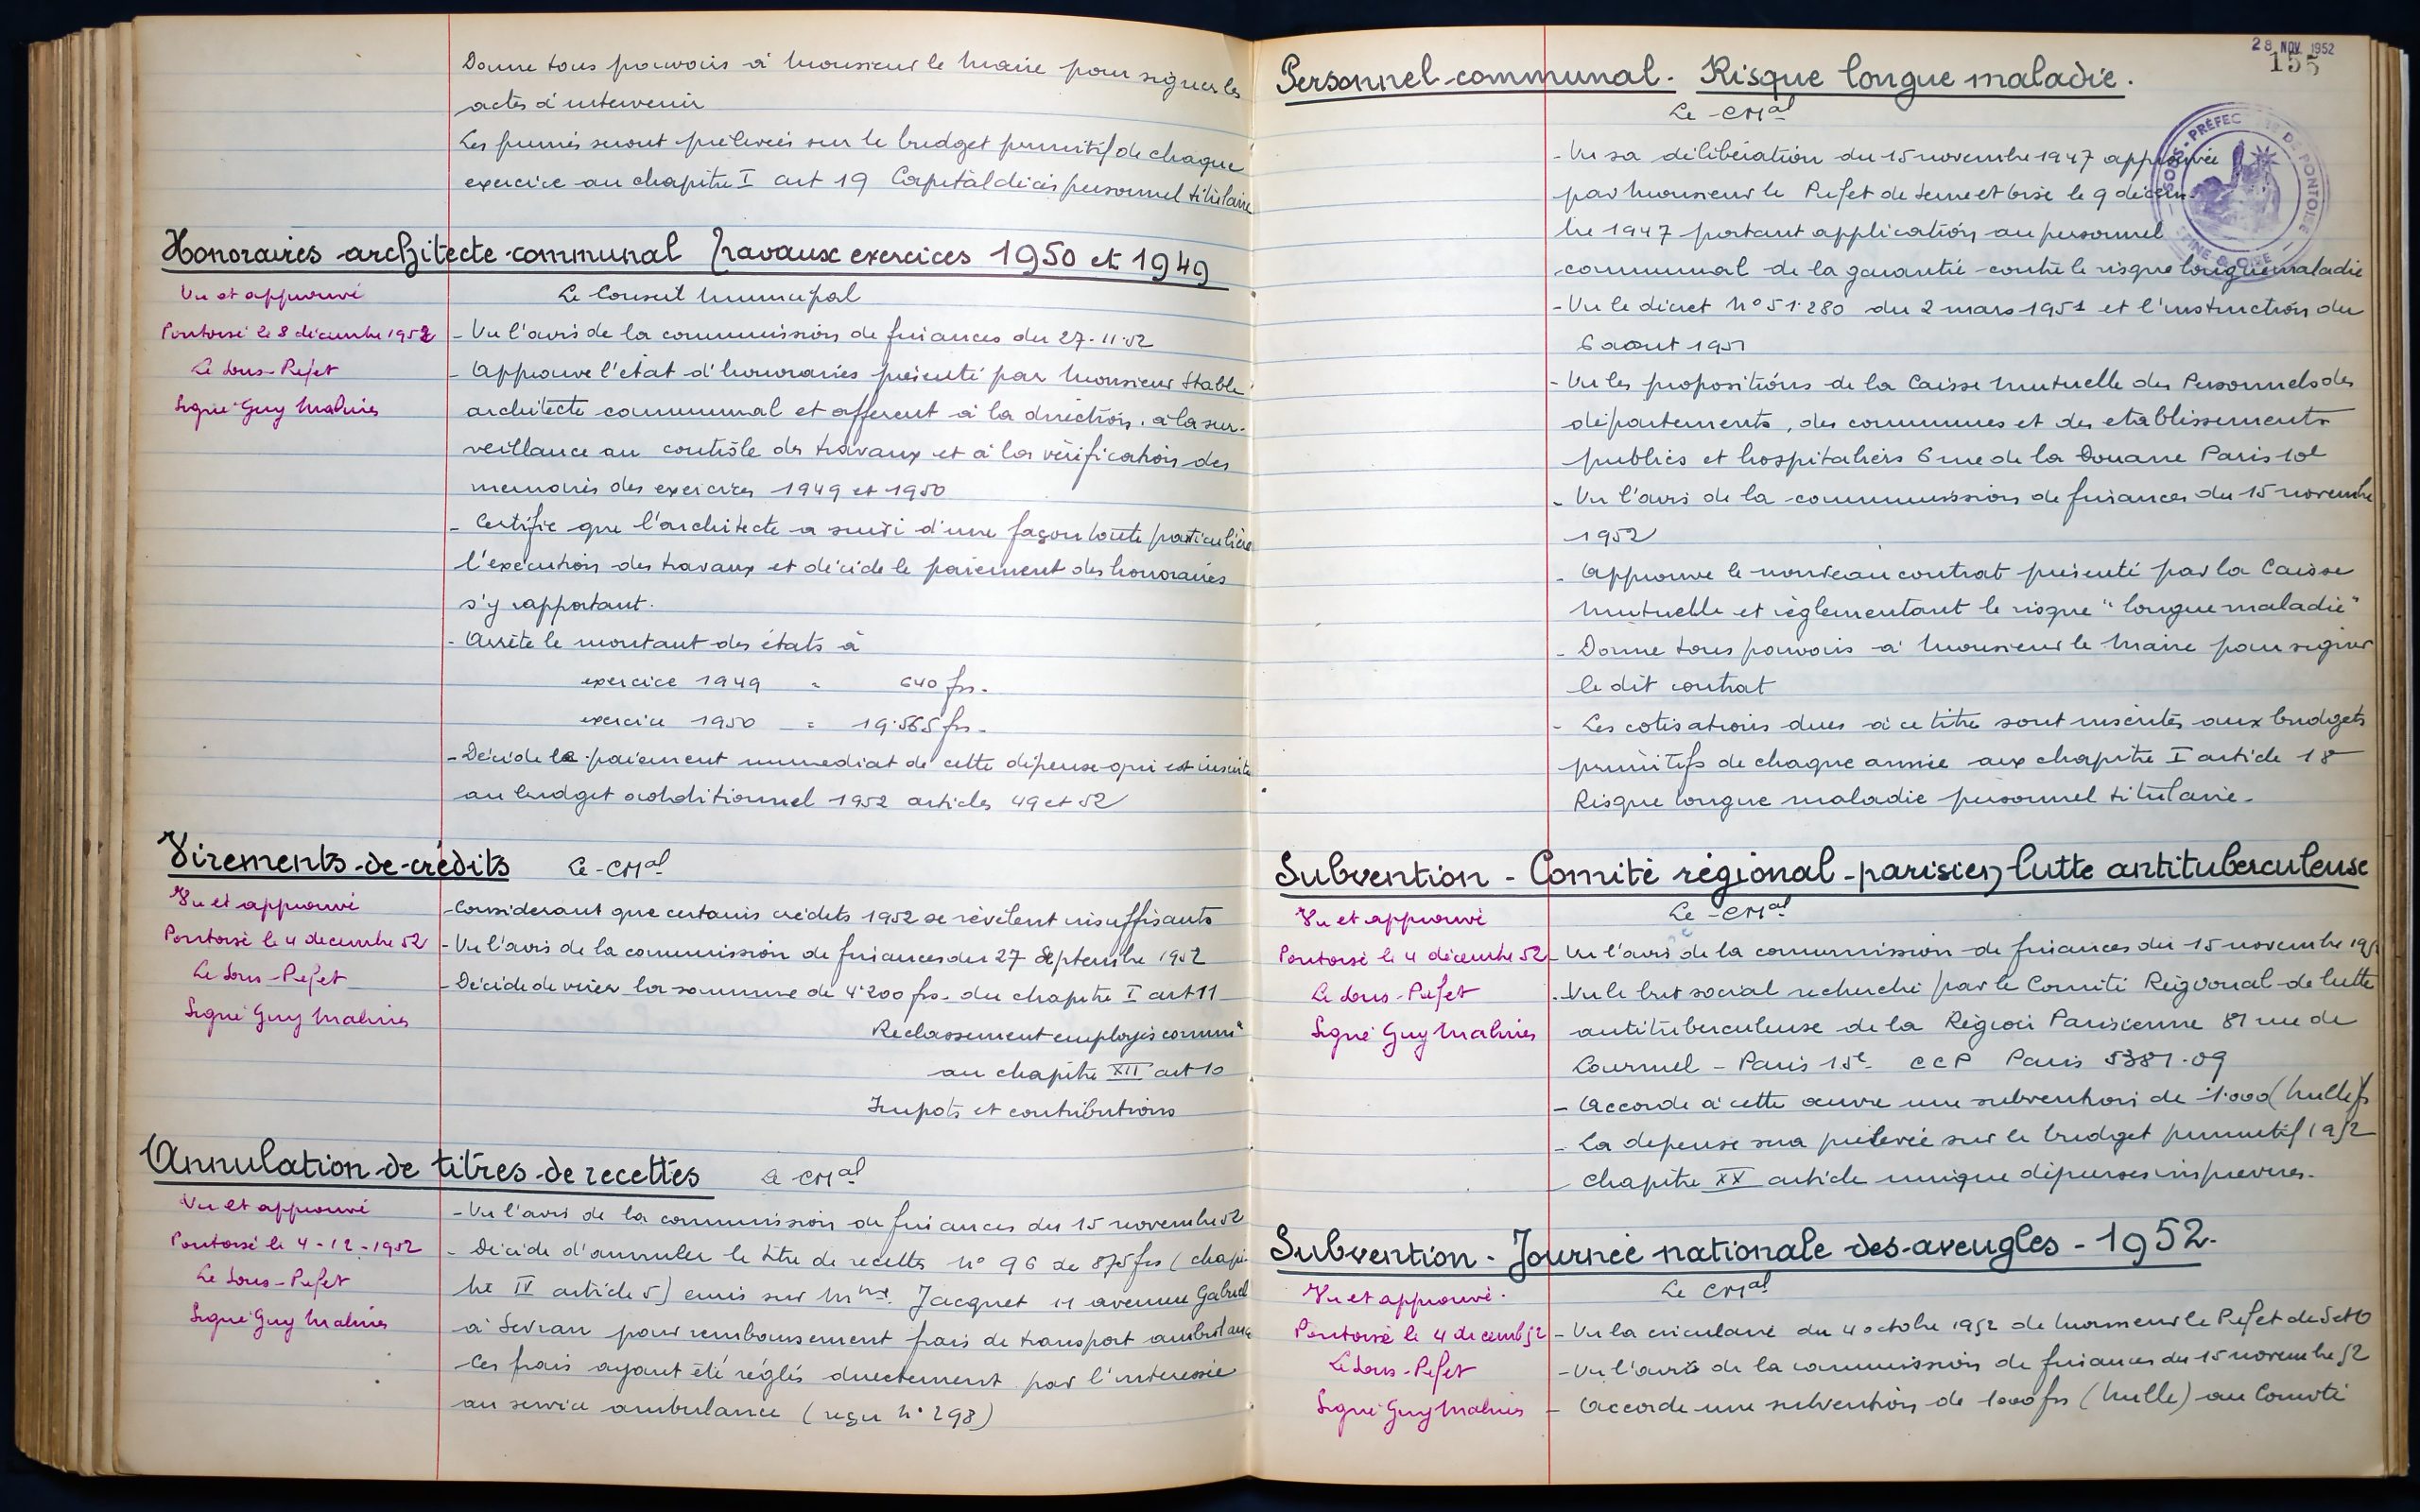 Donne tous pouvoirs à Monsieur le Maire pour signer les
actes à intervenir
Les primes seront prélevées sur le budget primitif de chaque
exercice au chapitre I art 19 Capital décès personnel titulaire
Honoraires architecte communal Travaux exercices 1950 et 1949
Le Conseil Municipal
Vu et approuvé
Pontoise le 8 décembre 1952
Le Sous-Préfet
Signé Guy Malines
- Vu l'avis de la commission de finances du 27-11-52
- Approuve l'état d'honoraires présenté par Monsieur Stable
architecte communal et afferent à la direction, à la sur-
veillance au contrôle des travaux et à la vérification des
memoires des exercices 1949 et 1950
- Certifie que l'architecte a suivi d'une façon toute particulière
l'execution des travaux et décide le paiement des honoraires
s'y rapportant.
- Arrête le montant des états à
exercice 1949 = 640 frs.
exercice 1950 = 19.565 frs.
- Décide le paiement immediat de cette dépense qui est inscrite
au budget additionnel 1952 articles 49 et 52
Virements de crédits Le CMal
Vu et approuvé
Pontoise le 4 decembre 52
Le Sous-Prefet
Signé Guy Malines
- Considerant que certains crédits 1952 se révèlent insuffisants
- Vu l'avis de la commission de finances du 27 Septembre 1952
- Décide de virer la somme de 4.200 frs. du chapitre I art 11
Reclassement employés commx
au chapitre XII art 10
Impots et contributions
Annulation de titres de recettes Le CMal
Vu et approuvé
Pontoise le 4-12-1952
Le Sous-Prefet
Signé Guy Malines
- Vu l'avis de la commission de finances du 15 novembre 52
- Décide d'annuler le titre de recettes n° 96 de 875 frs (chapi-
tre IV article 5) emis sur Mme Jacquet 11 avenue Gabriel
à Sevran pour remboursement frais de transport ambulance
Ces frais ayant été réglés directement par l'interessée
au service ambulance (reçu n° 298)
28 NOV 1952
155
Personnel communal. Risque longue maladie.
Le CMal
SOUS-PRÉFECTURE DE PONTOISE
SEINE & OISE
- Vu sa délibération du 15 novembre 1947 approuvée
par Monsieur le Prefet de Seine et Oise le 9 décem-
bre 1947 portant application au personnel
communal de la garantie contre le risque longue maladie
- Vu le décret N° 51.280 du 2 mars 1951 et l'instruction du
6 aout 1951
- Vu les propositions de la Caisse Mutuelle des Personnels des
départements, des communes et des etablissements
publics et hospitaliers 6 rue de la Douane Paris 10e
- Vu l'avis de la commission de finances du 15 novembre
1952
- Approuve le nouveau contrat présenté par la Caisse
Mutuelle et règlementant le risque "longue maladie"
- Donne tous pouvoirs à Monsieur le Maire pour signer
le dit contrat
- Les cotisations dues à ce titre sont inscrites aux budgets
primitifs de chaque année aux chapitre I article 18
Risque longue maladie personnel titulaire.
Subvention - Comité régional parisien lutte antituberculeuse
Le CMal
Vu et approuvé
Pontoise le 4 décembre 52
Le Sous-Prefet
Signé Guy Malines
- Vu l'avis de la commission de finances du 15 novembre 195
- Vu le but social recherché par le Comité Régional de lutte
antituberculeuse de la Région Parisienne 81 rue de
Lourmel - Paris 15e. CCP Paris 5381.09
- Accorde à cette œuvre une subvention de 1.000 (Mille) f
- La depense sera prélevée sur le budget primitif 1952
chapitre XX article unique dépenses imprevues.
Subvention - Journée nationale des aveugles - 1952.
Le CMal
Vu et approuvé.
Pontoise le 4 decemb 52
Le Sous-Prefet
Signé Guy Malines
- Vu la circulaire du 4 octobre 1952 de Monsieur le Prefet de S et O
- Vu l'avis de la commission de finances du 15 novembre 52
- Accorde une subvention de 1000 frs (Mille) au Comité